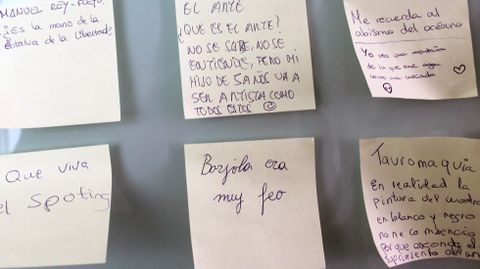 MANUEL REY-FUEYO
¡ES la mano de la
Estatua de la Libertad!
EL ARTE
¿QUE ES EL ARTE?
NO SE SABE, NO SE
ENTIENDE, PERO MI
HIJO DE 5 AÑOS VA A
SER ARTISTA COMO
TODOS ESTOS
Me recuerda al
abismo del océano
Yo veo una montaña
de la que cae agua
una cascada
QUE VIVA
el Spoting
Barjola era
muy feo
Tauromaquia
En realidad la
pintura del cuadro
en blanco y negro
no me convence
Porque esconde el
sufrimiento del